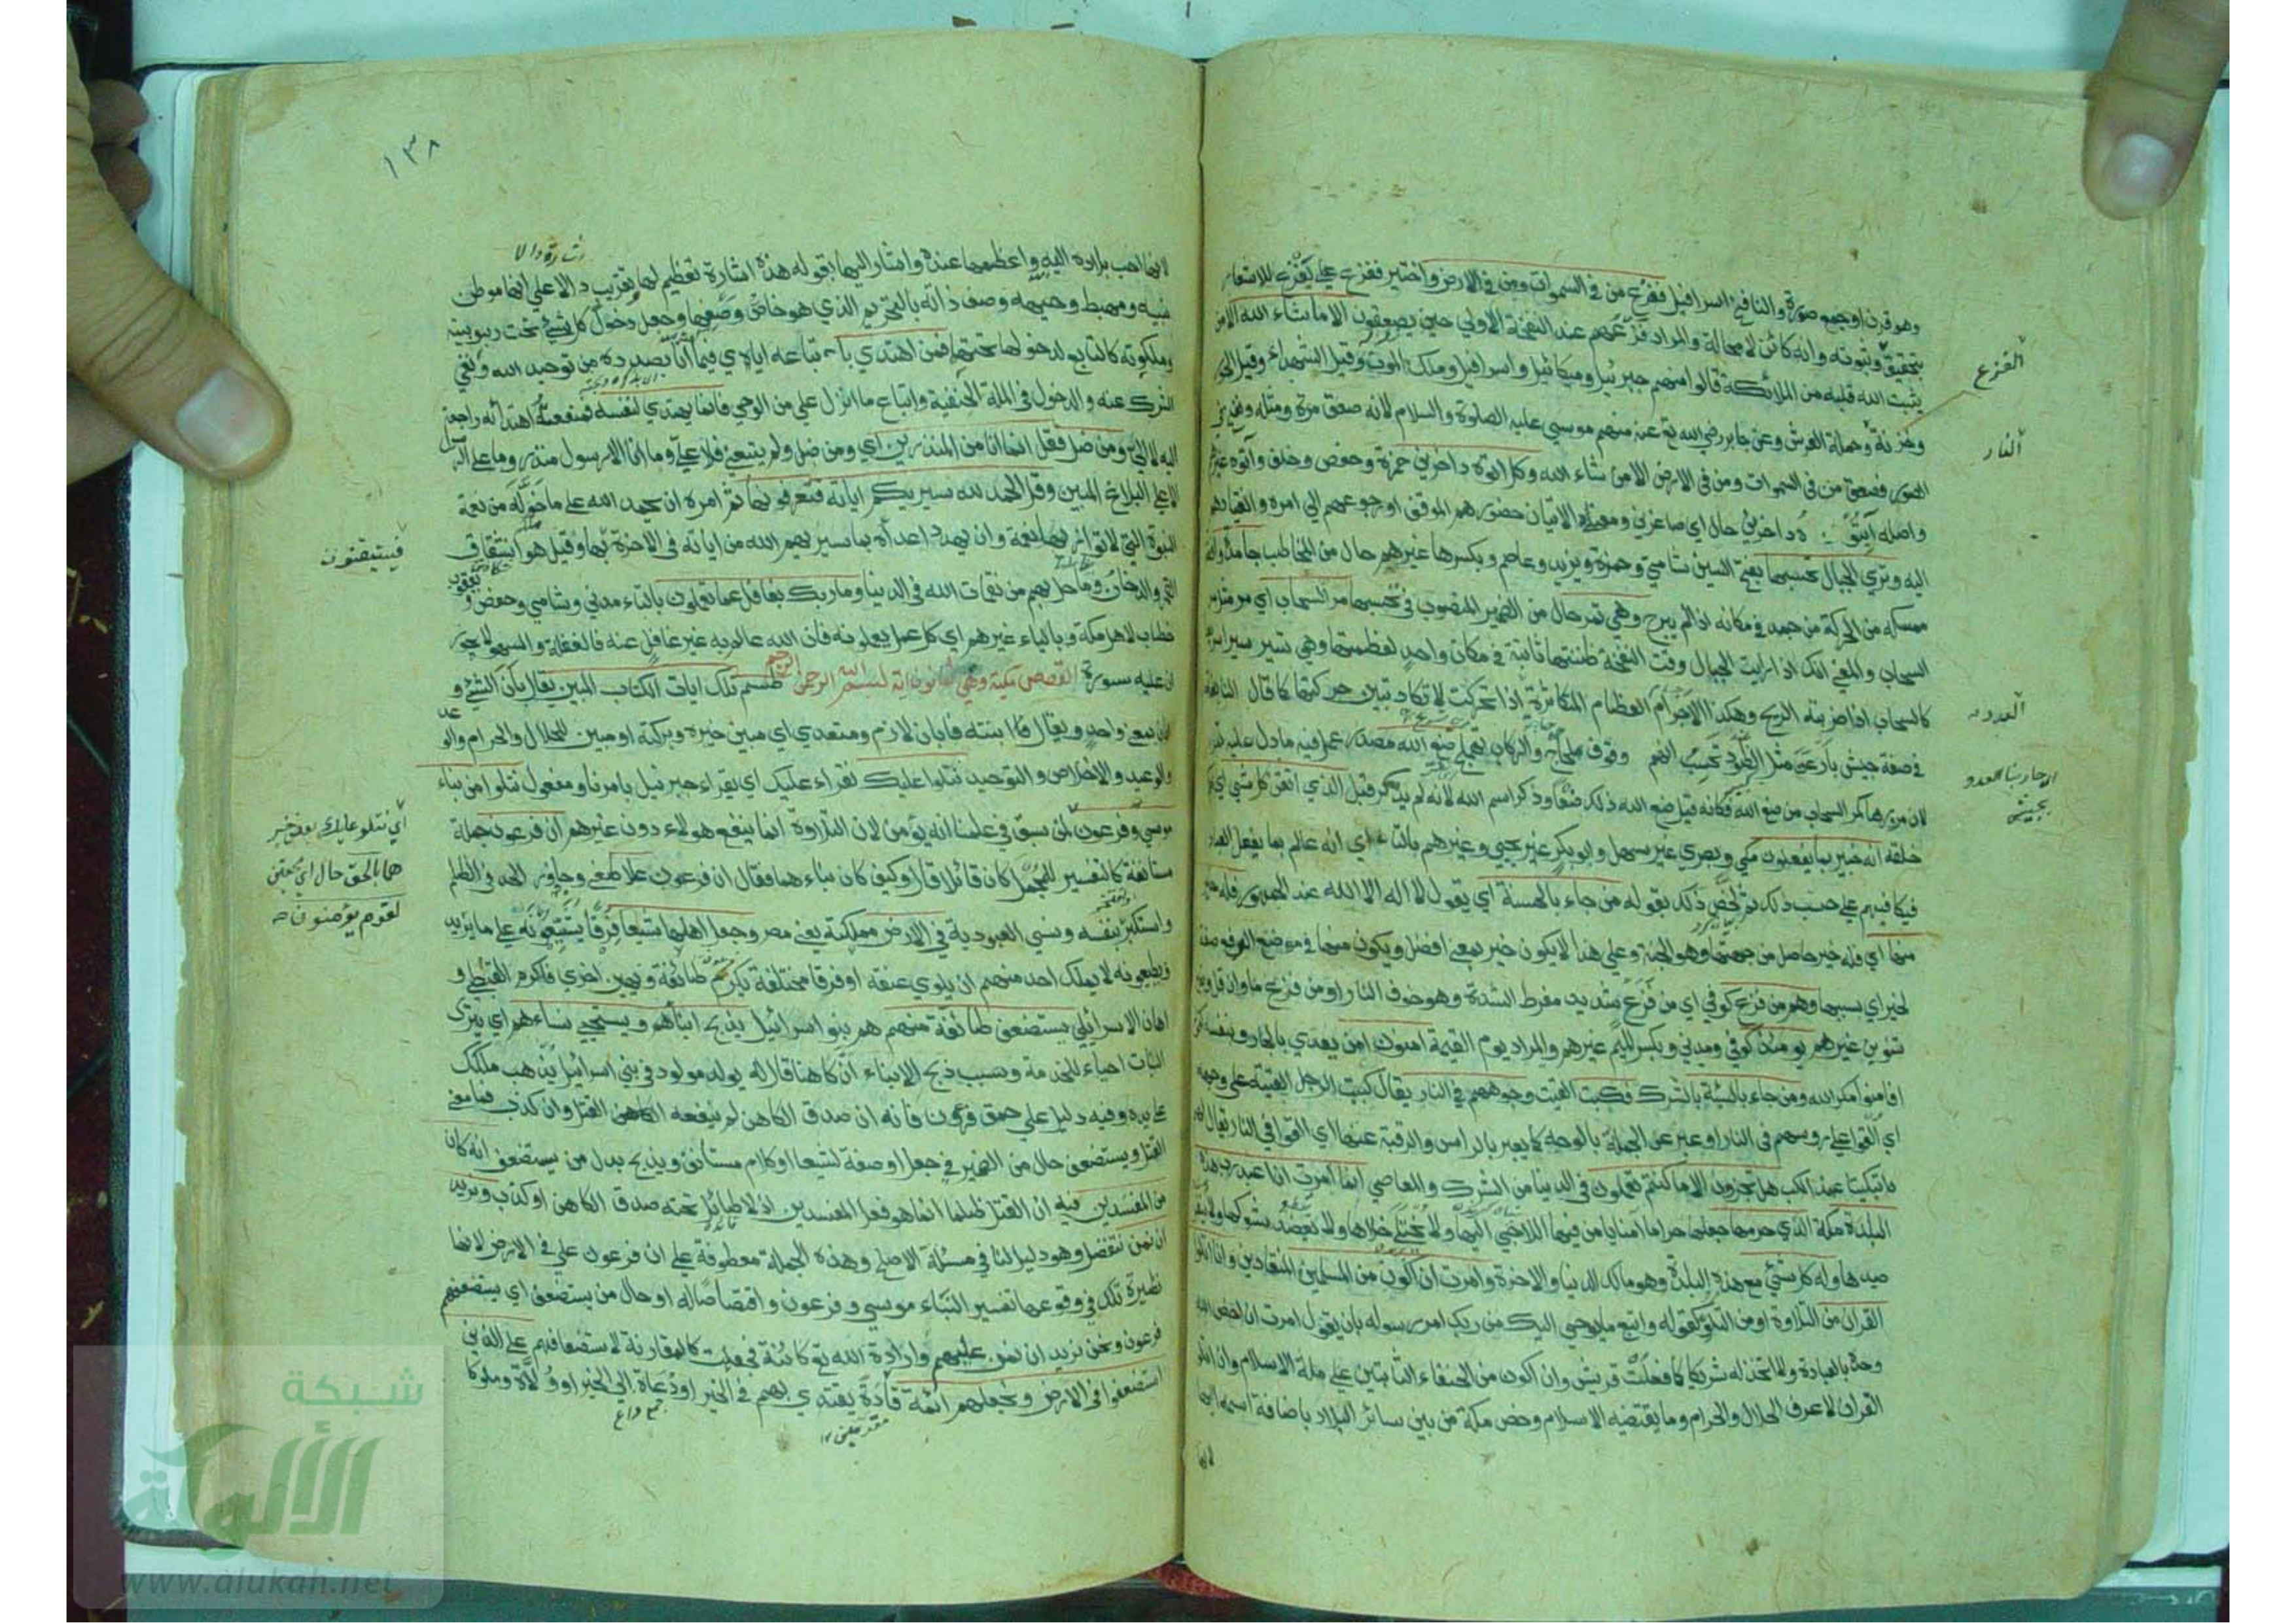 وهو قرن او جمع صورة والنافخ اسرافيل ففزع من في السموات ومن في الارض واختير ففزع على يفزع للاشعار
بتحقيق وثبوته وانه كائن لا محالة والمراد فزعهم عند النفخة الاولى حين يصعقون الا ما شاء الله الا من
يثبت الله قلبه من الملائكة قالوا منهم جبرئيل وميكائيل واسرافيل وملك الموت وقيل الشهداء وقيل الحور
وخزنة وحملة العرش وعن جابر رضي الله تع عنه منهم موسى عليه الصلوة والسلام لانه صعق مرة ومثله ونفخ في
الصور فصعق من في السموات ومن في الارض الا من شاء الله وكل اتوه داخرين حمزة وحفص وخلف وآتوه غيرهم
واصله آتيوه داخرين حال اي صاغرين ومعنى الاتيان حضورهم الموقف او رجوعهم الى امره وانقيادهم
اليه وترى الجبال تحسبها بفتح السين شامي وحمزة ويزيد وعاصم وبكسرها غيرهم حال من المخاطب جامدة واقفة
ممسكة من الحركة من جمد في مكانه اذا لم يبرح وهي تمر حال من الضمير المنصوب في تحسبها مر السحاب اي مر مثل مر
السحاب والمعنى انك اذا رايت الجبال وقت النفخة ظننتها ثابتة في مكان واحد لعظمتها وهي تسير سيرا سريعا
كالسحاب اذا ضربته الريح وهكذا الاجرام العظام المتكاثرة اذا تحركت لا تكاد تبين حركتها كما قال النابغة
في صفة جيش بارعن مثل الطود تحسب انهم وقوف لحاج والركاب تهملج صنع الله مصدر عمل فيه ما دل عليه تمر
لان مرورها كمر السحاب من صنع الله فكانه قيل صنع الله ذلك صنعا وذكر اسم الله لانه لم يذكر قبل الذي اتقن كل شيء اي احكم
خلقه انه خبير بما يفعلون مكي وبصري غير سهل وابو بكر غير يحيى وغيرهم بالتاء اي انه عالم بما يفعل العباد
فيكافيهم على حسب ذلك ثم لخص ذلك بقوله من جاء بالحسنة اي بقول لا اله الا الله عند الجمهور فله خير
منها اي فله خير حاصل من جهتها وهو الجنة وعلى هذا لا يكون خير بمعنى افضل ويكون منها في موضع الرفع صفة
لخير اي بسببها وهم من فزع كوفي اي من فزع شديد مفرط الشدة وهو خوف النار او من فزع ما وان قل وبغير
تنوين غيرهم يومئذ كوفي ومدني وبكسر الميم غيرهم والمراد يوم القيمة امنون امن يعدى بالجار وبنفسه كقوله
افامنوا مكر الله ومن جاء بالسيئة بالشرك فكبت القيت وجوههم في النار يقال كببت الرجل القيته على وجهه
اي القوا على رؤسهم في النار او عبر عن الجملة بالوجه كما يعبر بالراس والرقبة عنها اي القوا في النار يقال لهم
تبكيتا عند الكب هل تجزون الا ما كنتم تعملون في الدنيا من الشرك والمعاصي انما امرت ان اعبد رب هذه
البلدة مكة الذي حرمها جعلها حراما آمنا يامن فيها اللاجي اليها ولا يختلى خلاها ولا يعضد شوكها ولا ينفر
صيدها وله كل شيء مع هذه البلدة وهو مالك الدنيا والاخرة وامرت ان اكون من المسلمين المنقادين وان اتلوا
القران من التلاوة او من التلو كقوله واتبع ما يوحى اليك من ربك امر رسوله بان يقول امرت ان اخص الله
وحده بالعبادة ولا اتخذ له شريكا كما فعلت قريش وان اكون من الحنفاء الثابتين على ملة الاسلام وان اتلو
القران لاعرف الحلال والحرام وما يقتضيه الاسلام وخص مكة من بين سائر البلاد باضافة اسمه اليها
لانها
الفزع
النار
العدو
اي حاربنا العدو
بجيش
١٣٨
لانها احب بلاده اليه واعظمها عنده واشار اليها بقوله هذه اشارة تعظيم لها وتقريب دالا على انها موطن
نبيه ومهبط وحيه ووصف ذاته بالتحريم الذي هو خاص وصفها وجعل دخول كل شيء تحت ربوبيته
وملكوته كالتابع لدخولها تحتها فمن اهتدى باتباعه اياي فيما انا بصدده من توحيد الله ونفي
الشرك عنه والدخول في الملة الحنفية واتباع ما انزل علي من الوحي فانما يهتدي لنفسه فمنفعة اهتدائه راجعة
اليه لا الي ومن ضل فقل انما انا من المنذرين اي ومن ضل ولم يتبعني فلا علي وما انا الا رسول منذر وما على الرسول
الا البلاغ المبين وقل الحمد لله سيريكم اياته فتعرفونها ثم امره ان يحمد الله على ما خوله من نعمة
النبوة التي لا توازيها نعمة وان يهدد اعداءه بما سيريهم الله من اياته في الاخرة وقيل هو انشقاق
القمر والدخان وما حل بهم من نقمات الله في الدنيا وما ربك بغافل عما تعملون بالتاء مدني وشامي وحفص و
خطاب لاهل مكة وبالياء غيرهم اي كل عمل يعلمونه فان الله عالم به غير غافل عنه فالغفلة والسهو لا يجوزان
عليه سورة القصص مكية وهي ثمانون اية بسم الله الرحمن الرحيم طسم تلك ايات الكتاب المبين يقال بان الشيء و
ابان بمعنى واحد ويقال ابنته فابان لازم ومتعدي اي مبين خيره وبركته او مبين للحلال والحرام والوعد
والوعيد والاخلاص والتوحيد نتلوا عليك نقراء عليك اي يقراء جبرئيل بامرنا ومفعول نتلوا من نباء
موسى وفرعون لمن سبق في علمنا انه يؤمن لان التلاوة انما ينفع هولاء دون غيرهم ان فرعون جملة
مستانفة كالتفسير للمجمل كان قائلا قال وكيف كان نباءهما فقال ان فرعون علا طغى وجاوز الحد في الظلم
واستكبر بنفسه ونسي العبودية في الارض مملكته يعني مصر وجعل اهلها شيعا فرقا يشيعونه على ما يريد
ويطيعونه لا يملك احد منهم ان يلوي عنقه او فرقا مختلفة يكرم طائفة ويهين اخرى فاكرم القبطي و
اهان الاسرائيلي يستضعف طائفة منهم هم بنو اسرائيل يذبح ابناءهم ويستحيي نساءهم اي يترك
البنات احياء للخدمة وسبب ذبح الابناء ان كاهنا قال له يولد مولود في بني اسرائيل يذهب ملكك
على يده وفيه دليل على حمق فرعون فانه ان صدق الكاهن لم ينفعه القتل وان كذب فما معنى
القتل ويستضعف حال من الضمير في جعل او صفة لشيعا او كلام مستانف ويذبح بدل من يستضعف انه كان
من المفسدين فيه ان القتل ظلما انما هو فعل المفسدين اذ لا طائل تحته صدق الكاهن او كذب ونريد
ان نمن نتفضل وهو دليل لنا في مسئلة الاصلح وهذه الجملة معطوفة على ان فرعون علا في الارض لانها
نظيرة تلك في وقوعها تفسير النباء موسى وفرعون واقتصاصا له او حال من يستضعف اي يستضعفهم
فرعون ونحن نريد ان نمن عليهم وارادة الله تع كائنة فجعلت كالمقارنة لاستضعافهم على الذين
استضعفوا في الارض ونجعلهم ائمة قادة يقتدى بهم في الخير او دعاة الى الخير او ولاة وملوكا
فيستيقنون
اي نتلو عليك بعض خبر
هما بالحق حال اي محقين
لقوم يؤمنون
جمع داع
شبكة
الألوكة
www.alukah.net